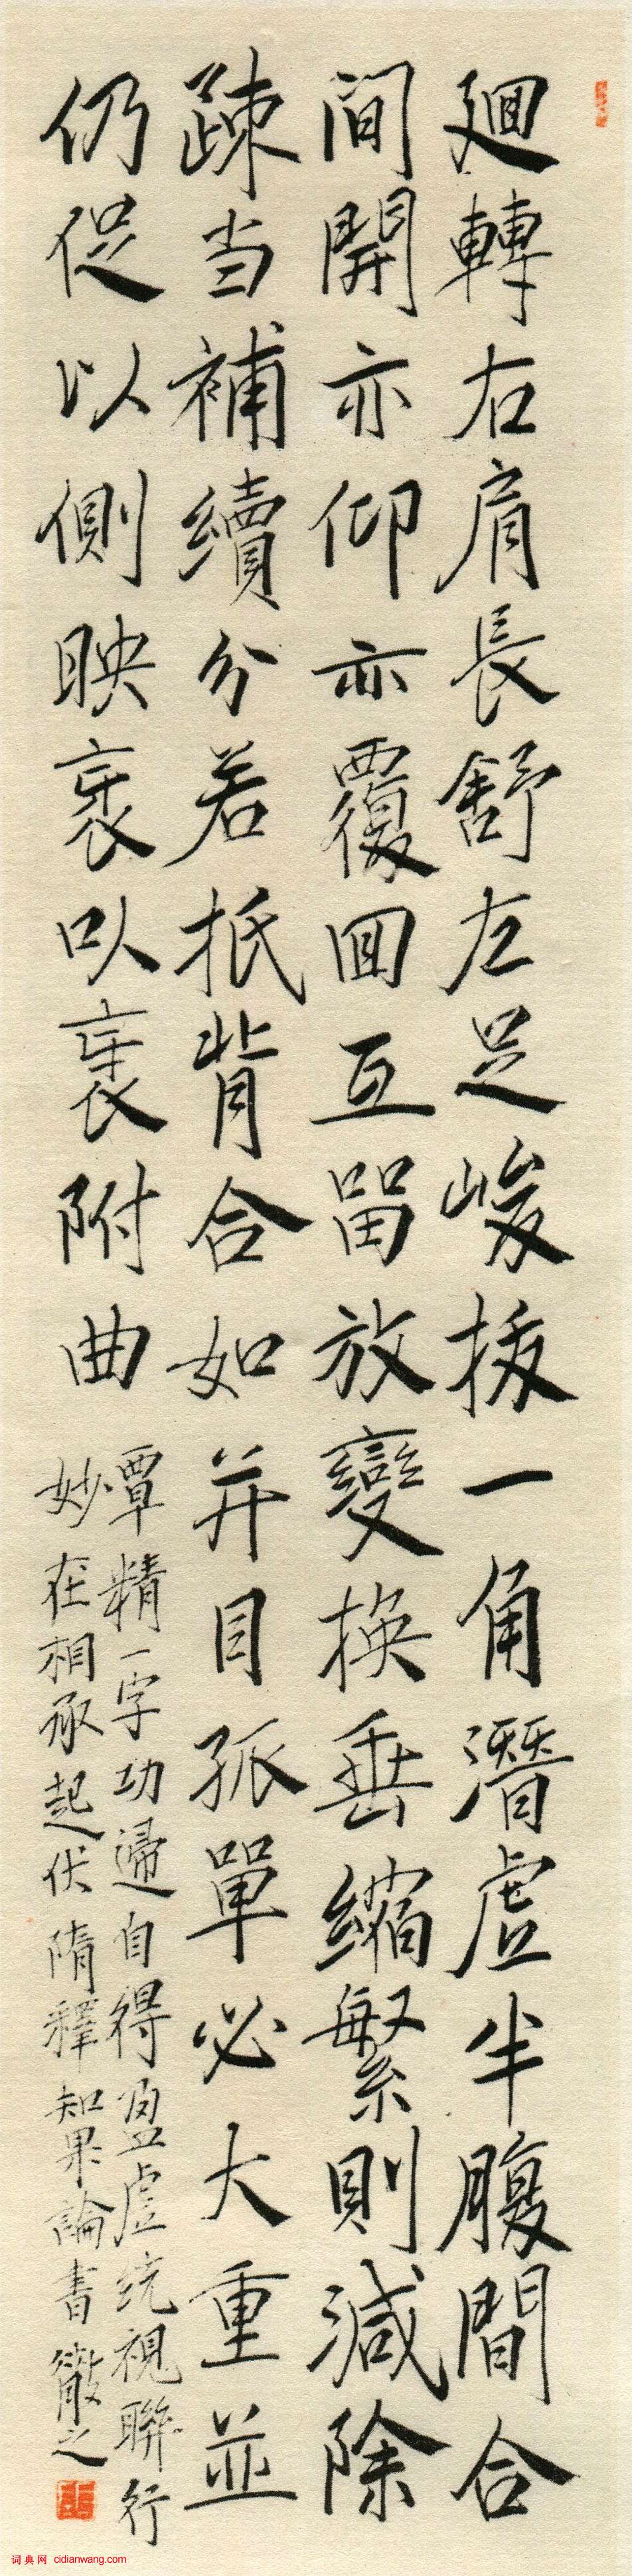 廻轉右肩長舒左足峻拔一角潛虛半腹間合
間開亦仰亦覆回互留放變換垂縮繁則減除
疎当補續分若抵背合如并目孤單必大重並
仍促以側映衷以衷附曲
覃精一字功歸自得盈虛统視聯行
妙在相承起伏隋釋智果論書徹之
词典网 cidianwang.com